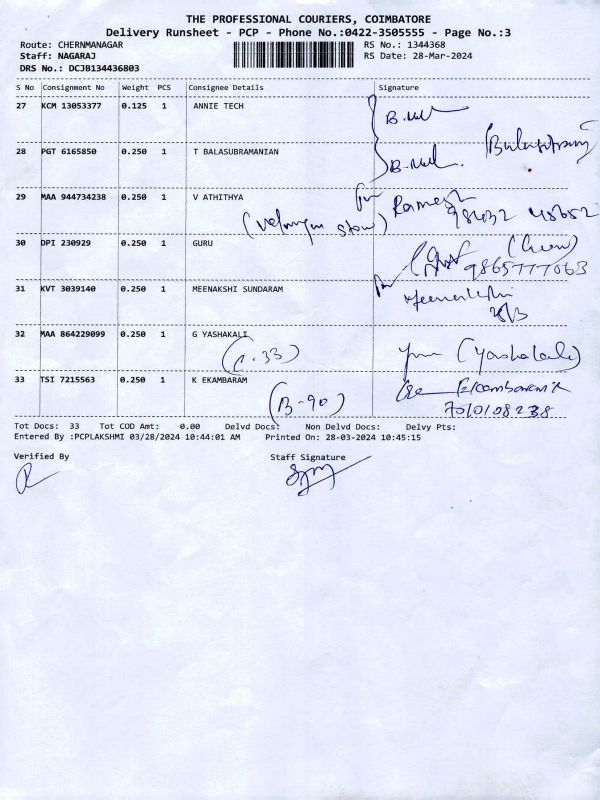 THE PROFESSIONAL COURIERS, COIMBATORE
Delivery Runsheet - PCP - Phone No.:0422-3505555 - Page No.:3
Route: CHERNMANAGAR RS No.: 1344368
Staff: NAGARAJ RS Date: 28-Mar-2024
DRS No.: DCJB134436803
S No Consignment No Weight PCS Consignee Details Signature
27 KCM 13053377 0.125 1 ANNIE TECH
28 PGT 6165850 0.250 1 T BALASUBRAMANIAN
29 MAA 944734238 0.250 1 V ATHITHYA Ramesh
30 DPI 230929 0.250 1 GURU
9865777063
31 KVT 3039140 0.250 1 MEENAKSHI SUNDARAM
28/3
32 MAA 864229099 0.250 1 G YASHAKALI
(Yashakali)
33 TSI 7215563 0.250 1 K EKAMBARAM
(B-90)
7010108238
Tot Docs: 33 Tot COD Amt: 0.00 Delvd Docs: Non Delvd Docs: Delvy Pts:
Entered By :PCPLAKSHMI 03/28/2024 10:44:01 AM Printed On: 28-03-2024 10:45:15
Verified By Staff Signature